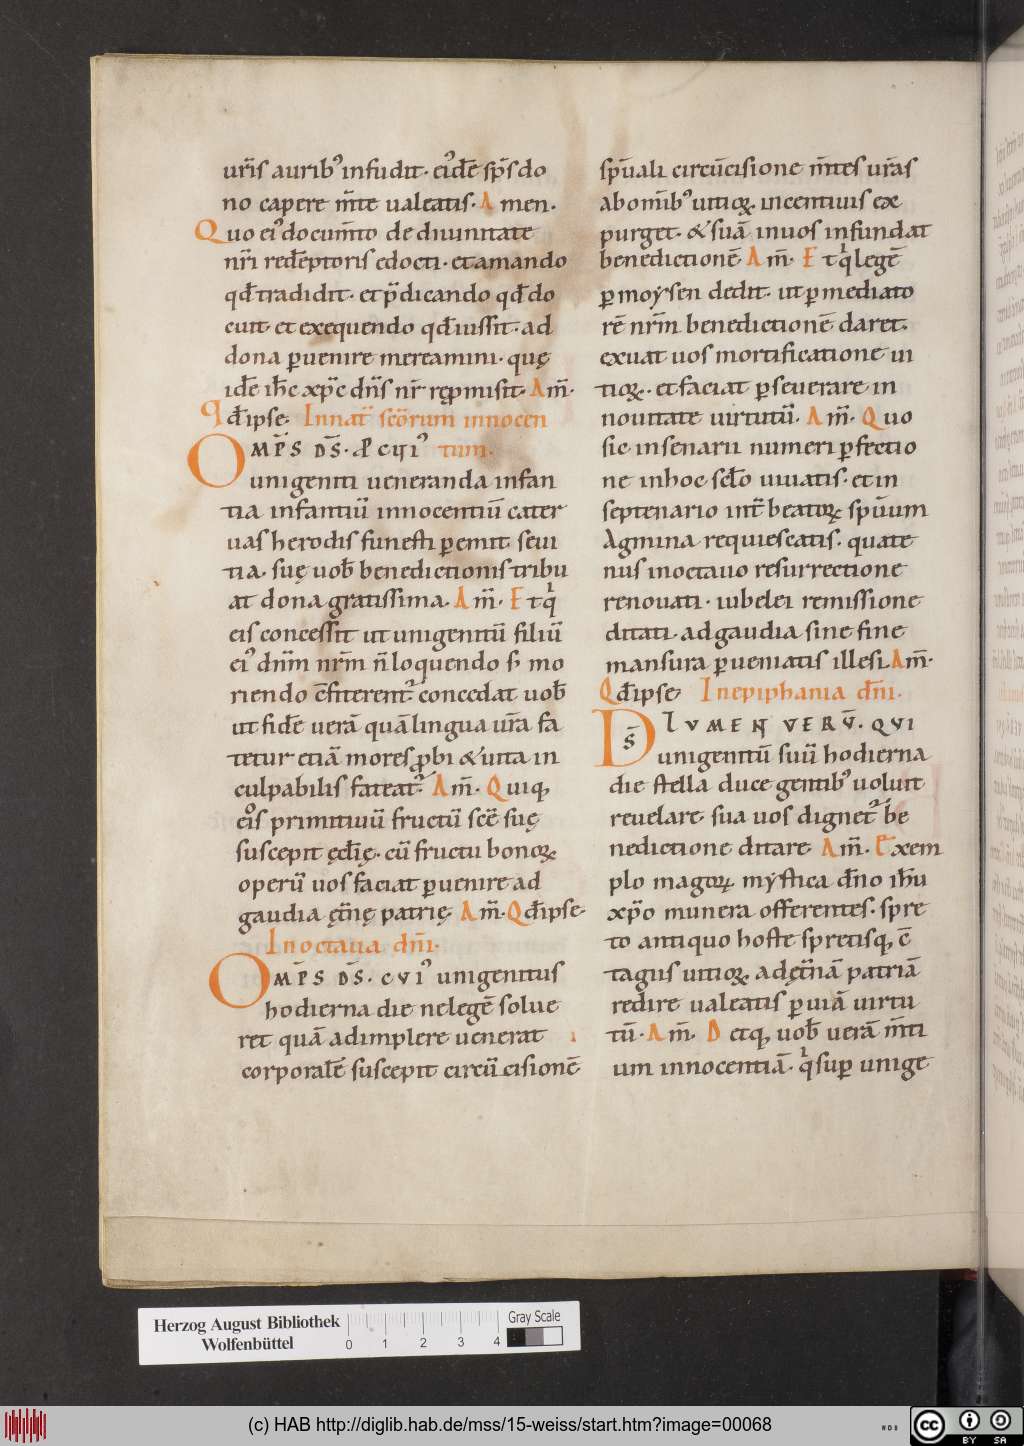 urīs auribꝰ infudit· eiꝰdē sp̄s do
no capere m̄te ualeatis· A men·
Quo eiꝰ docum̄to de diuinitate
nr̄i redēptoris edocti· et amando
qd̄ tradidit· et p̄dicando qd̄ do
cuit et exequendo qd̄ iussit· ad
dona ꝑuenire mereamini· quę
idē ih̄c xp̄c dn̄s nr̄ rep̱misit· Am̄·
qd̄ ipse· In nat̄ scōrum innocen
OMP̄S DS̄· cuiꝰ tum·
unigeniti ueneranda infan
tia infantiū innocentiū cater
uas herodis funesti ꝑemit seui
tia· suę uob̄ benedictionis tribu
at dona gratissima· Am̄· Et qͥ
eis concessit ut unigenitū filiū
eiꝰ dn̄m nr̄m n̄ loquendo sꝫ mo
riendo cf̄iterent᷑ concedat uob̄
ut fidē uerā quā lingua ur̄a fa
tetur etiā mores ꝓbi & uita in
culpabilis fateat᷑· Am̄· Quiq,
eōs primitiuū fructū scē suę
suscepit ęcl̄ię· cū fructu bonoꝝ
operū uos faciat ꝑuenire ad
gaudia ęt̄nę patrię· Am̄· Qd̄ ipse·
In octaua dn̄i·
OMP̄S DS̄· CVIꝰ unigenitus
hodierna die ne legē solue
ret quā adimplere uenerat
corporalē suscepit circū cisionē
sp̄uali circūcisione m̄tes ur̄as
ab omībꝰ uitioꝝ incentiuis ex
purget· & suā in uos infundat
benedictionē Am̄· Et qͥ legē
ꝑ moysen dedit· ut ꝑ mediato
rē nr̄m benedictionē daret·
exuat uos mortificatione ui
tioꝝ· et faciat ꝑseuerare in
nouitate uirtutū· Am̄· Quo
sic in senarii numeri ꝑfectio
ne in hoc scl̄o uiuatis· et in
septenario int̄ beatoꝝ sp̄uum
Agmina requiescatis· quate
nus in octauo resurrectione
renouati· iubelei remissione
ditati· ad gaudia sine fine
mansura ꝑueniatis illesi Am̄·
Qd̄ ipse· In epiphania dn̄i·
DS̄ LVMEN VERV̄· QVI
unigenitū suū hodierna
die stella duce gentibꝰ uoluit
reuelare· sua uos dignet᷑ be
nedictione ditare Am̄· Exem
plo magoꝝ mystica dn̄o ih̄u
xp̄o munera offerentes· spre
to antiquo hoste spretisq, c̄
tagiis uitioꝝ ad ęt̄nā patriā
redire ualeatis ꝑ uiā uirtu
tū· Am̄· Detq, uob̄ uerā m̄ti
um innocentiā· qͥ suꝑ unige
Herzog August Bibliothek
Wolfenbüttel
0 1 2 3 4
Gray Scale
(c) HAB http://diglib.hab.de/mss/15-weiss/start.htm?image=00068
cc BY SA